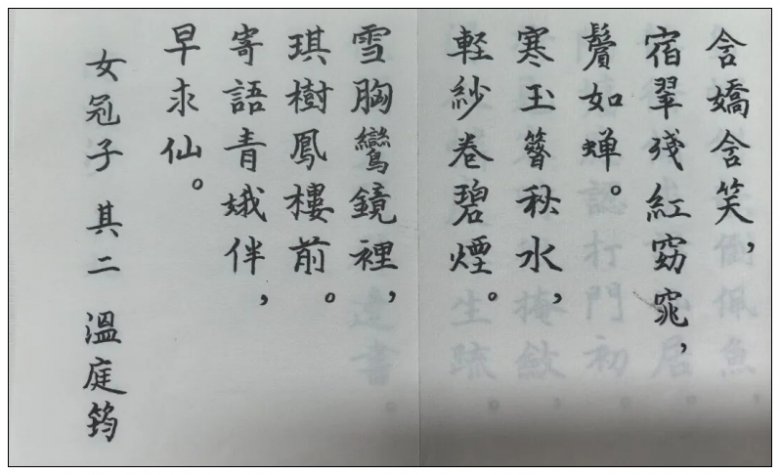 含嬌含笑，
宿翠殘紅窈窕，
鬢如蝉。
寒玉簪秋水，
軽紗卷碧煙。
雪胸鸞鏡裡，
琪樹鳳樓前。
寄語青娥伴，
早求仙。
女冠子 其二 溫庭筠